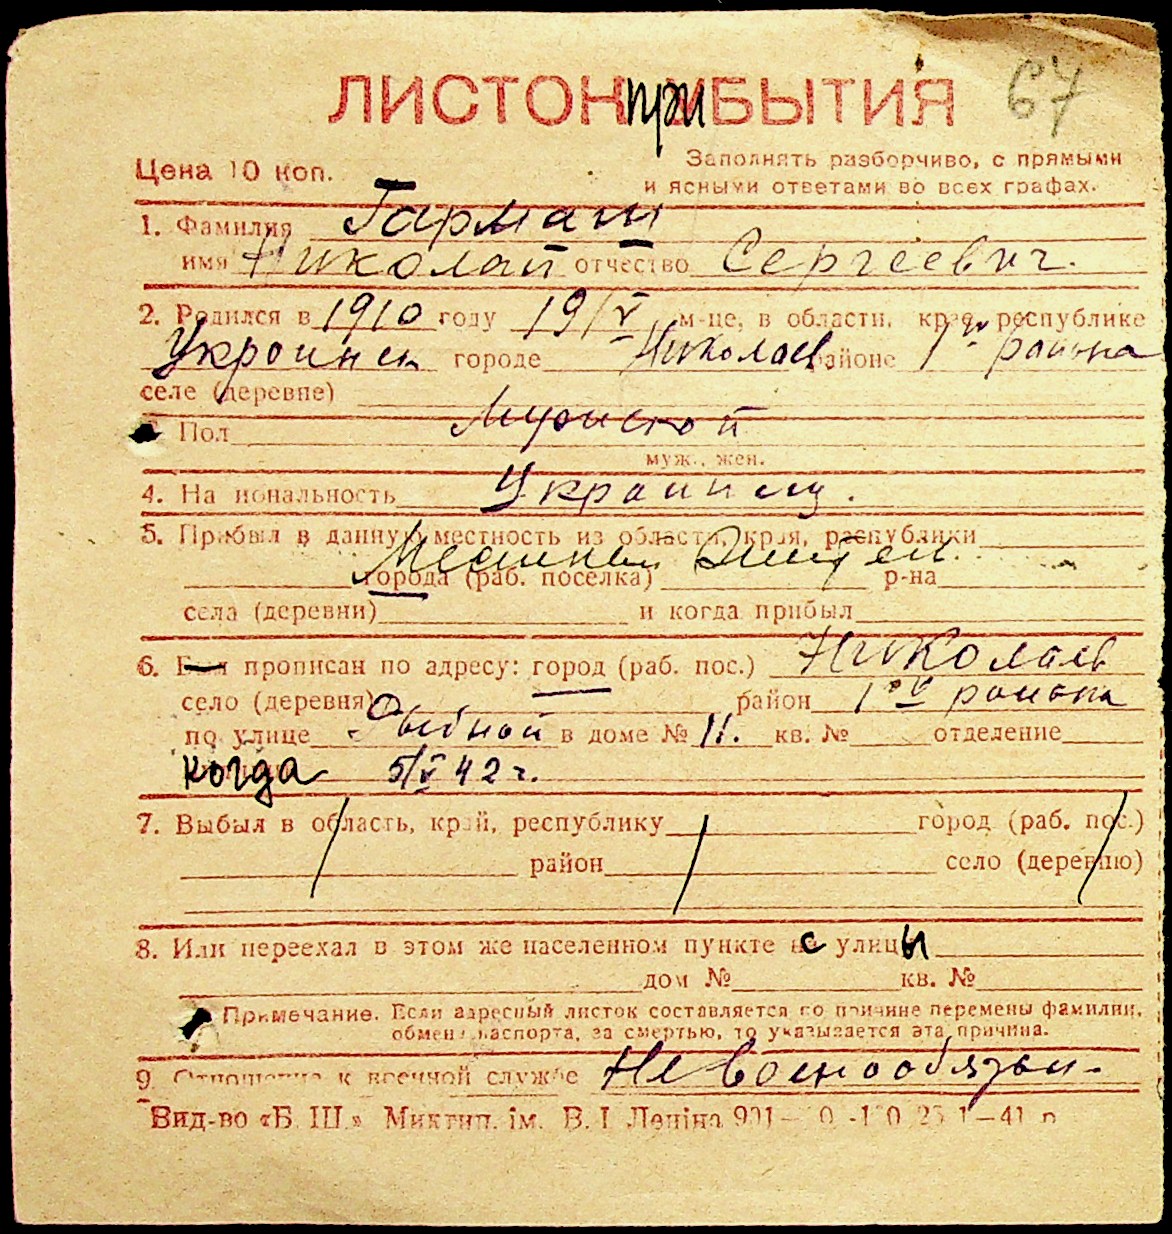 67
ЛИСТОК при БЫТИЯ
Цена 10 коп. Заполнять разборчиво, с прямыми
и ясными ответами во всех графах.
1. Фамилия Гармаш
имя Николай отчество Сергеевич.
2. Родился в 1910 году 19/V м-це, в области, крае, республике
Украинск городе Николаев районе 1го района
селе (деревне)
Пол Мужской
муж., жен.
4. Национальность Украинец.
5. Прибыл в данную местность из области, края, республики
города (раб. поселка) р-на
села (деревни) и когда прибыл
6. Был прописан по адресу: город (раб. пос.) Николаев
село (деревня) район 1го района
по улице Рыбной в доме № 11. кв. № отделение
когда 5/V 42 г.
7. Выбыл в область, край, республику город (раб. пос.)
район село (деревню)
8. Или переехал в этом же населенном пункте с улицы
дом № кв. №
Примечание. Если адресный листок составляется по причине перемены фамилии,
обмена паспорта, за смертью, то указывается эта причина.
9. Отношение к военной службе Невоенообязан.
Вид-во «Б. Ш.» Миктип. ім. В. І. Леніна